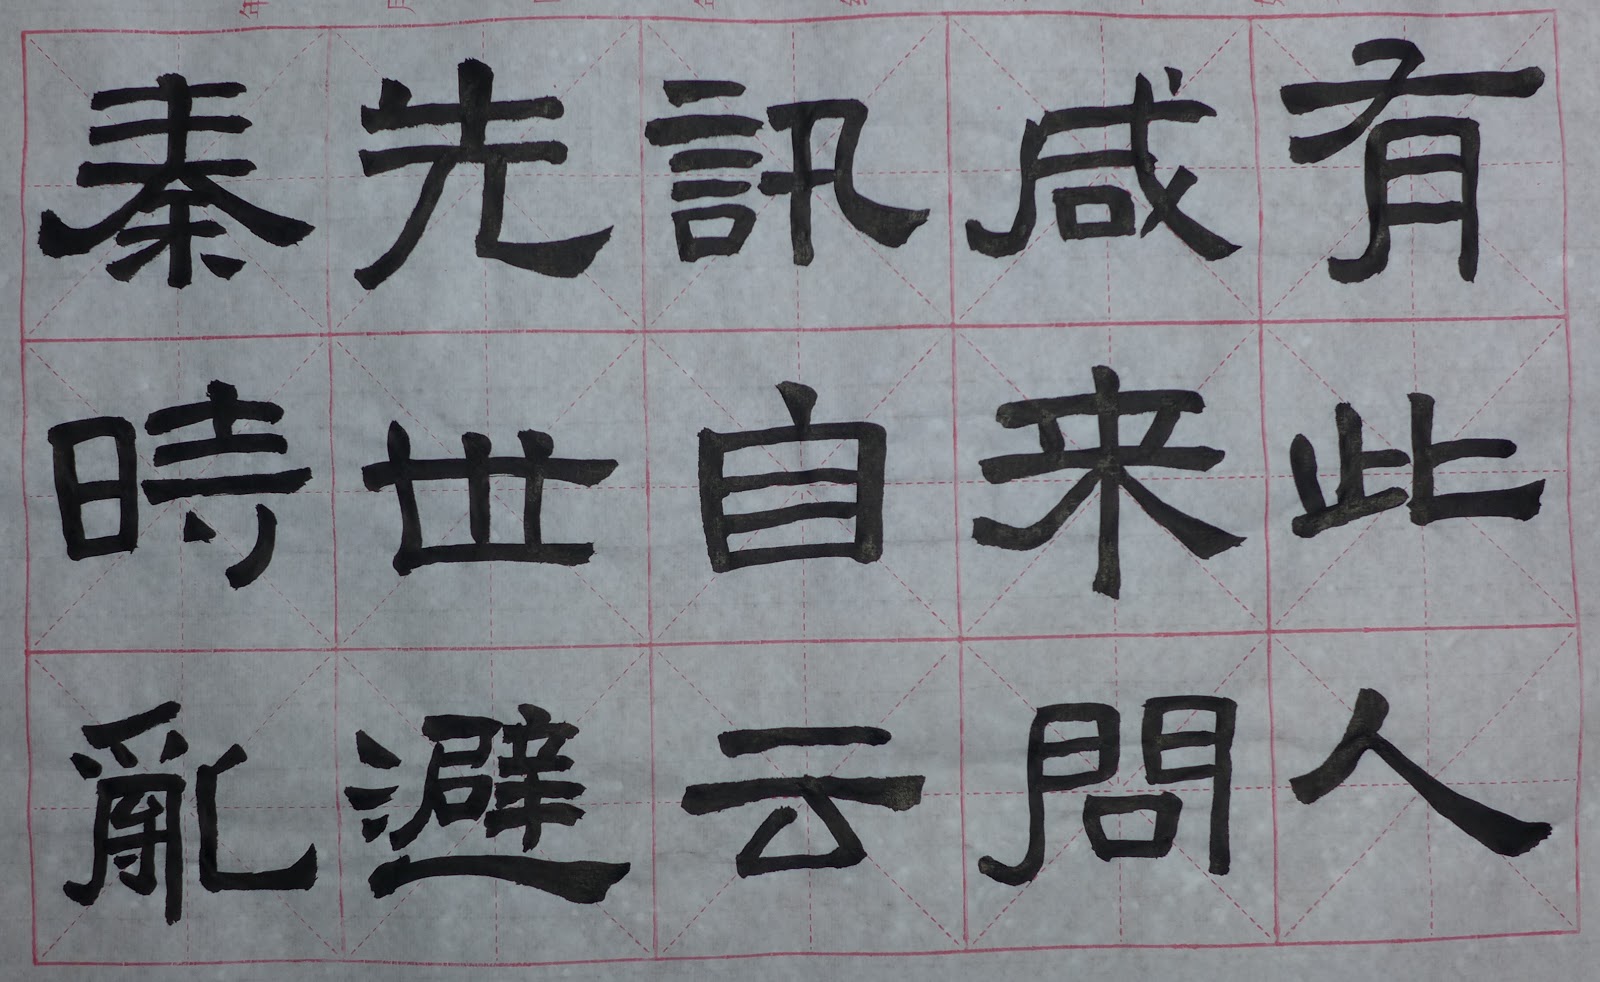 有此人
咸来問
訊自云
先世避
秦時亂